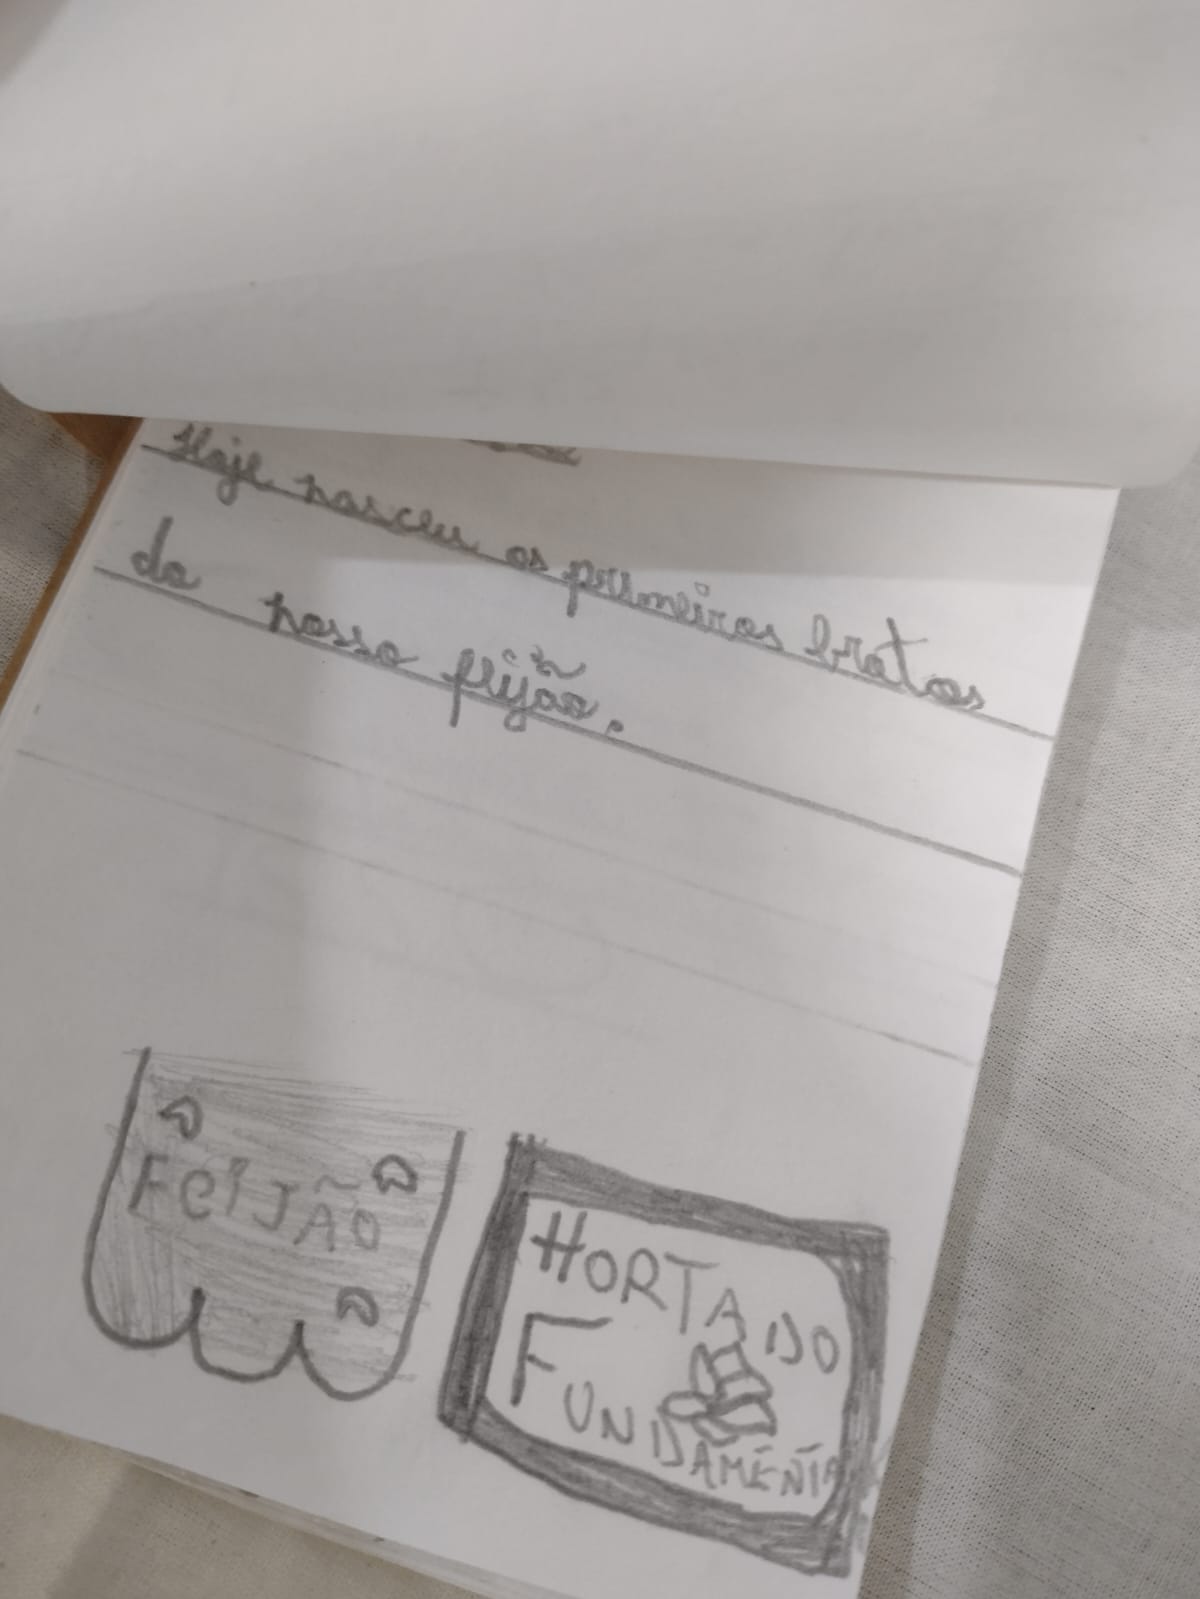 Hoje nasceu os primeiros brotos
do nosso feijão.
FEIJÃO
HORTA DO
FUNDAMENTAL